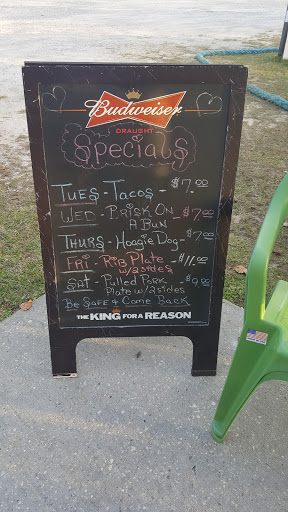 Budweiser
DRAUGHT
Specials
TUES - TACOS - $7.00
WED - BRISK ON - $7.00
A BUN
THURS - Hoagie Dog - $7.00
FRI - RIB Plate - $11.00
w/2 sides
SAT - Pulled Pork $9.00
Plate w/2 sides
Be SAFE & Come Back
THE KING FOR A REASON